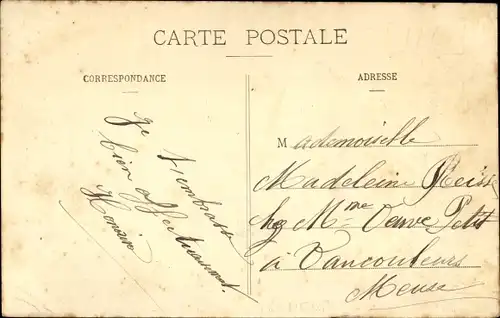 CARTE POSTALE
CORRESPONDANCE
Je t'embrasse
bien affectueusement.
ADRESSE
Mademoiselle
Madeleine Reiss
chez Mme Veuve Petit
à Vaucouleurs
Meuse